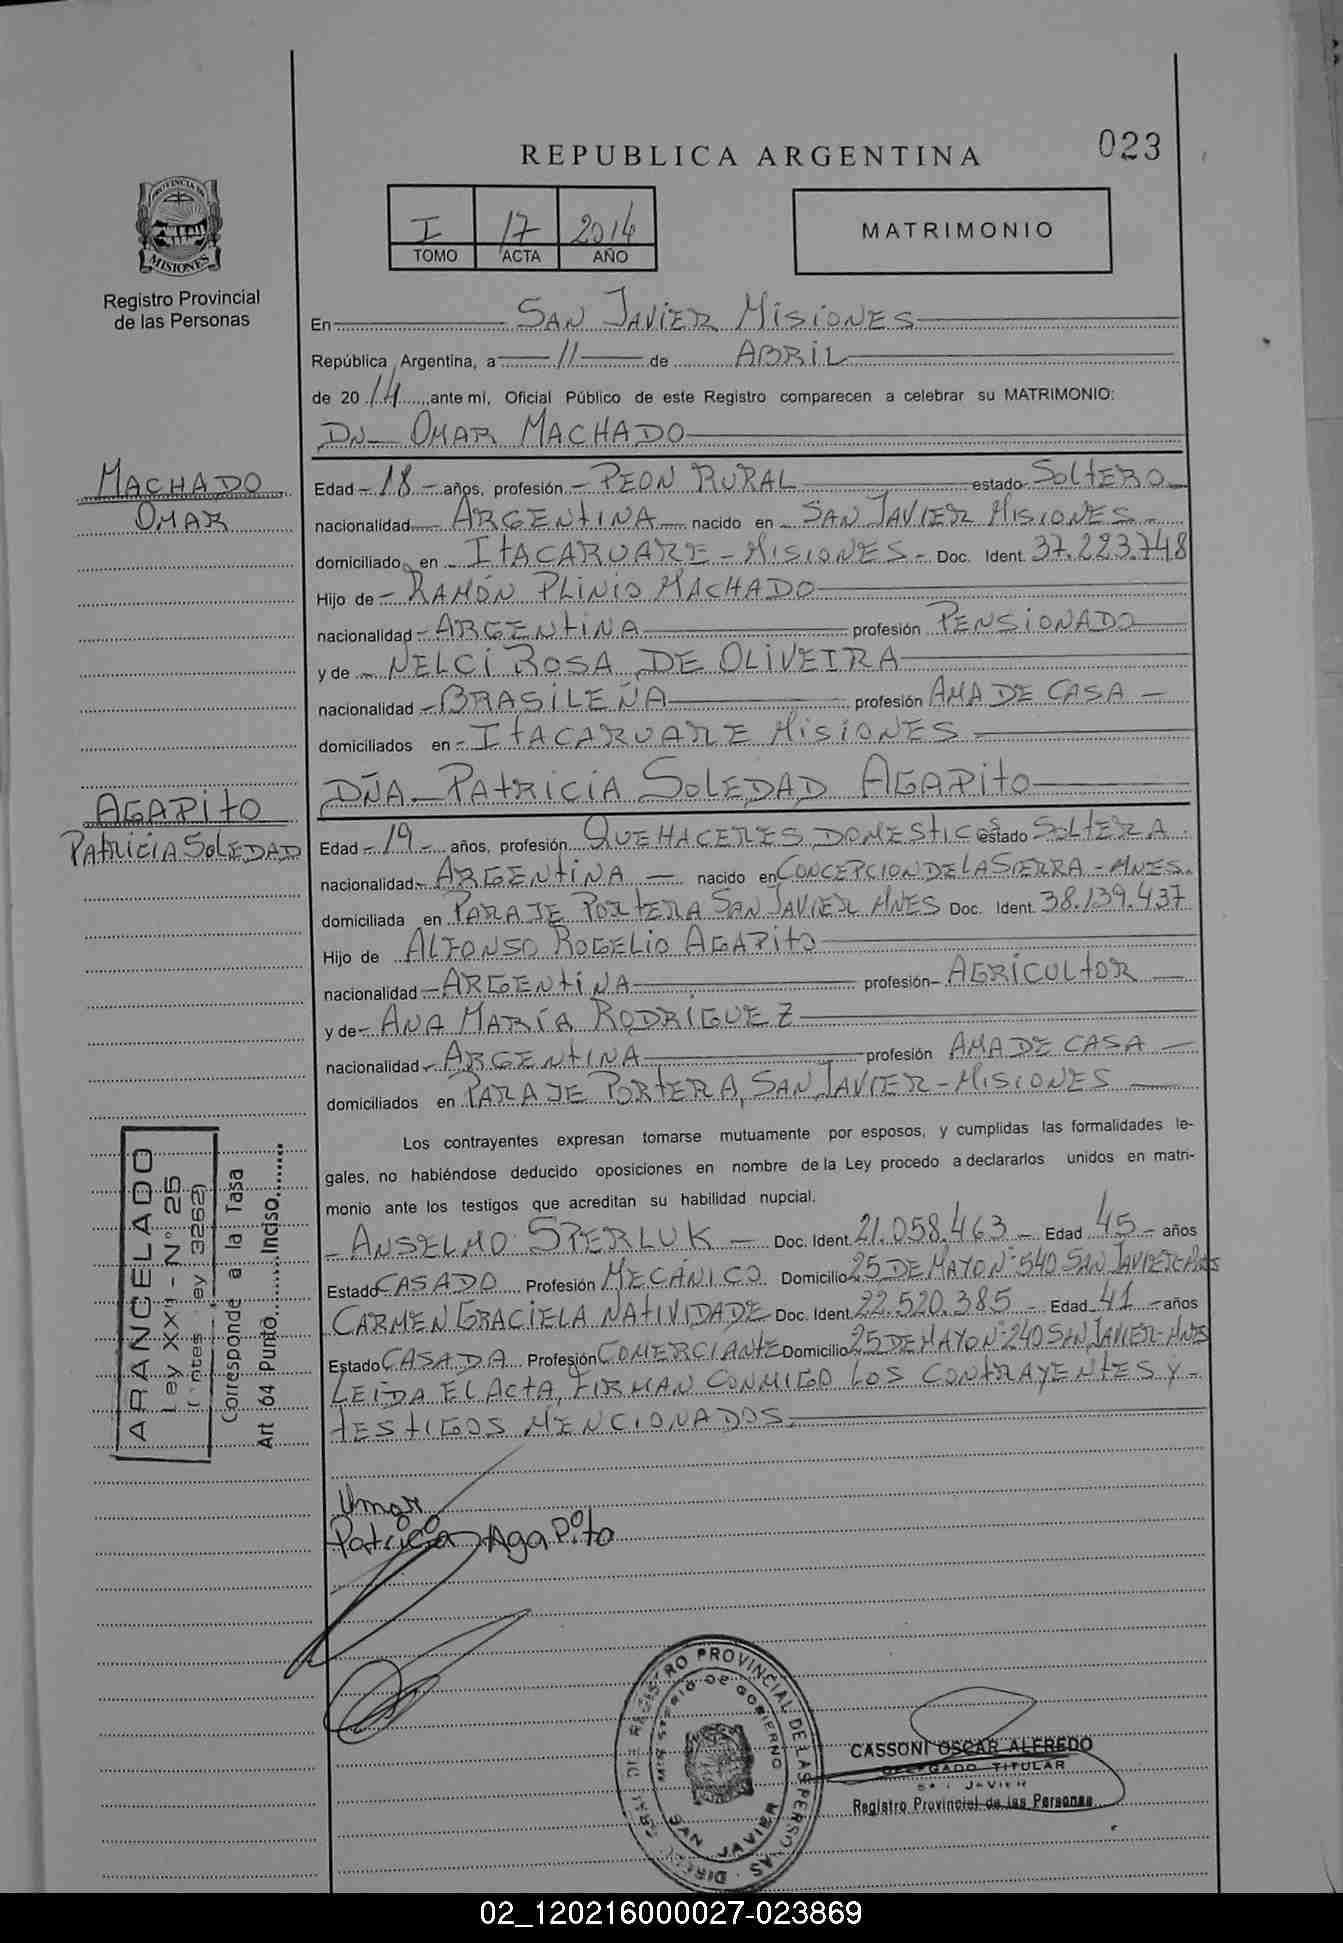 REPUBLICA ARGENTINA
023
PROVINCIA DE
MISIONES
Registro Provincial
de las Personas
I 17 2014
TOMO ACTA AÑO
MATRIMONIO
En SAN JAVIER MISIONES
República Argentina, a 11 de ABRIL
de 2014, ante mi, Oficial Público de este Registro comparecen a celebrar su MATRIMONIO:
DN- OMAR MACHADO
MACHADO
OMAR
Edad - 18 - años, profesión - PEON RURAL estado SOLTERO
nacionalidad ARGENTINA nacido en SAN JAVIER MISIONES -
domiciliado en ITACARUARE - MISIONES - Doc. Ident. 37.223.748
Hijo de - RAMÓN PLINIO MACHADO
nacionalidad - ARGENTINA profesión PENSIONADO
y de - NELCI ROSA DE OLIVEIRA
nacionalidad - BRASILEÑA profesión AMA DE CASA -
domiciliados en - ITACARUARE MISIONES
DÑA- PATRICIA SOLEDAD AGAPITO
AGAPITO
PATRICIA SOLEDAD
Edad - 19 - años, profesión QUEHACERES DOMESTICOS estado SOLTERA
nacionalidad - ARGENTINA - nacido en CONCEPCION DE LA SIERRA - MNES.
domiciliada en PARAJE PORTERA SAN JAVIER MNES Doc. Ident. 38.139.437
Hijo de ALFONSO ROGELIO AGAPITO
nacionalidad - ARGENTINA profesión - AGRICULTOR -
y de - ANA MARÍA RODRIGUEZ
nacionalidad - ARGENTINA profesión AMA DE CASA -
domiciliados en PARAJE PORTERA, SAN JAVIER - MISIONES
Los contrayentes expresan tomarse mutuamente por esposos, y cumplidas las formalidades le-
gales, no habiéndose deducido oposiciones en nombre de la Ley procedo a declararlos unidos en matri-
monio ante los testigos que acreditan su habilidad nupcial.
- ANSELMO SPERLUK - Doc. Ident. 21.058.463 - Edad 45 - años
Estado CASADO Profesión MECÁNICO Domicilio 25 DE MAYO Nº 540 SAN JAVIER MNES
CARMEN GRACIELA NATIVIDADE Doc. Ident. 22.520.385 - Edad 41 - años
Estado CASADA Profesión COMERCIANTE Domicilio 25 DE MAYO Nº 240 SAN JAVIER - MNES
LEIDA EL ACTA, FIRMAN CONMIGO LOS CONTRAYENTES Y -
TESTIGOS MENCIONADOS.
ARANCELADO
Ley XXII - Nº 25
ley 3262)
Corresponde a la Tasa
Art 64 Punto Inciso
Omar
Patricia Agapito
REGISTRO PROVINCIAL DE LAS PERSONAS
MINISTERIO DE GOBIERNO
SAN JAVIER
CASSONI OSCAR ALFREDO
DELEGADO TITULAR
SAN JAVIER
Registro Provincial de las Personas
02_120216000027-023869